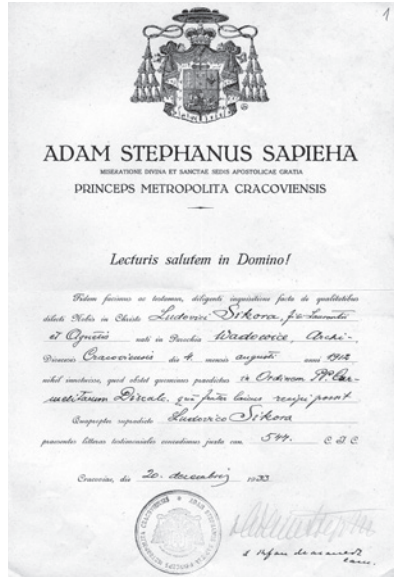 1
ADAM STEPHANUS SAPIEHA
MISERATIONE DIVINA ET SANCTAE SEDIS APOSTOLICAE GRATIA
PRINCEPS METROPOLITA CRACOVIENSIS
Lecturis salutem in Domino!
Fidem facimus ac testamur, diligenti inquisitione facta de qualitatibus
dilecti Nobis in Christo Ludovici Sikora, f. Laurentii
et Agnetis nati in Parochia Wadowice, Archi-
Dioecesis Cracoviensis die 4. mensis augusti anni 1912
nihil innotuisse, quod obstet quominus praedictus in Ordinem Car-
melitarum Discalc. frater laicus recipi possit
Quapropter supradicto Ludovico Sikora
praesentes litteras testimoniales concedimus juxta can. 544. C. I. C.
Cracoviae, die 20. decembris 1933
ADAM STEPHANUS PRINCEPS METROPOLITA CRACOVIENSIS